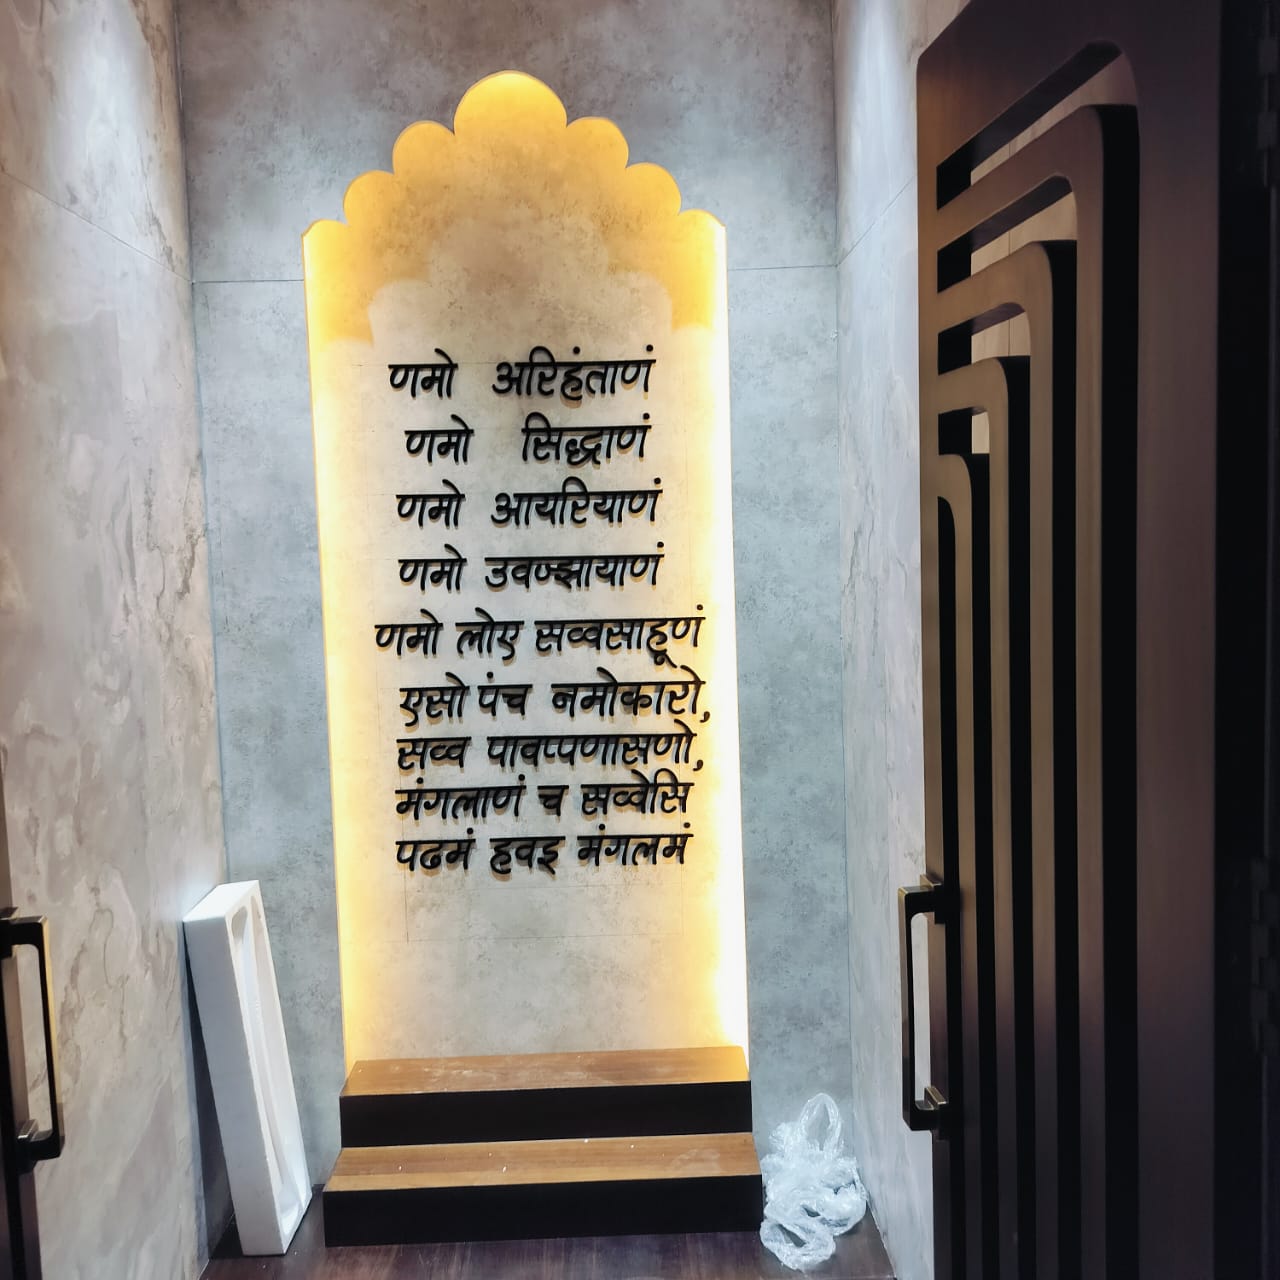 णमो अरिहंताणं
णमो सिद्धाणं
णमो आयरियाणं
णमो उवज्झायाणं
णमो लोए सव्वसाहूणं
एसो पंच नमोकारो,
सव्व पावप्पणासणो,
मंगलाणं च सव्वेसिं
पढमं हवइ मंगलमं